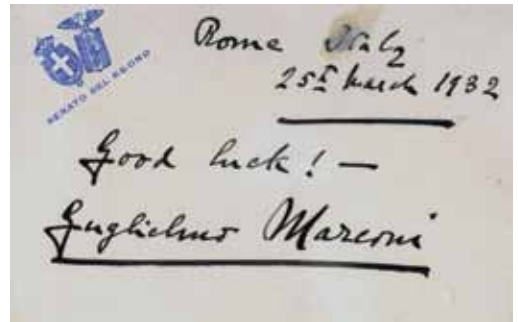 SENATO DEL REGNO
Rome Italy
25th March 1932
Good luck! —
Guglielmo Marconi